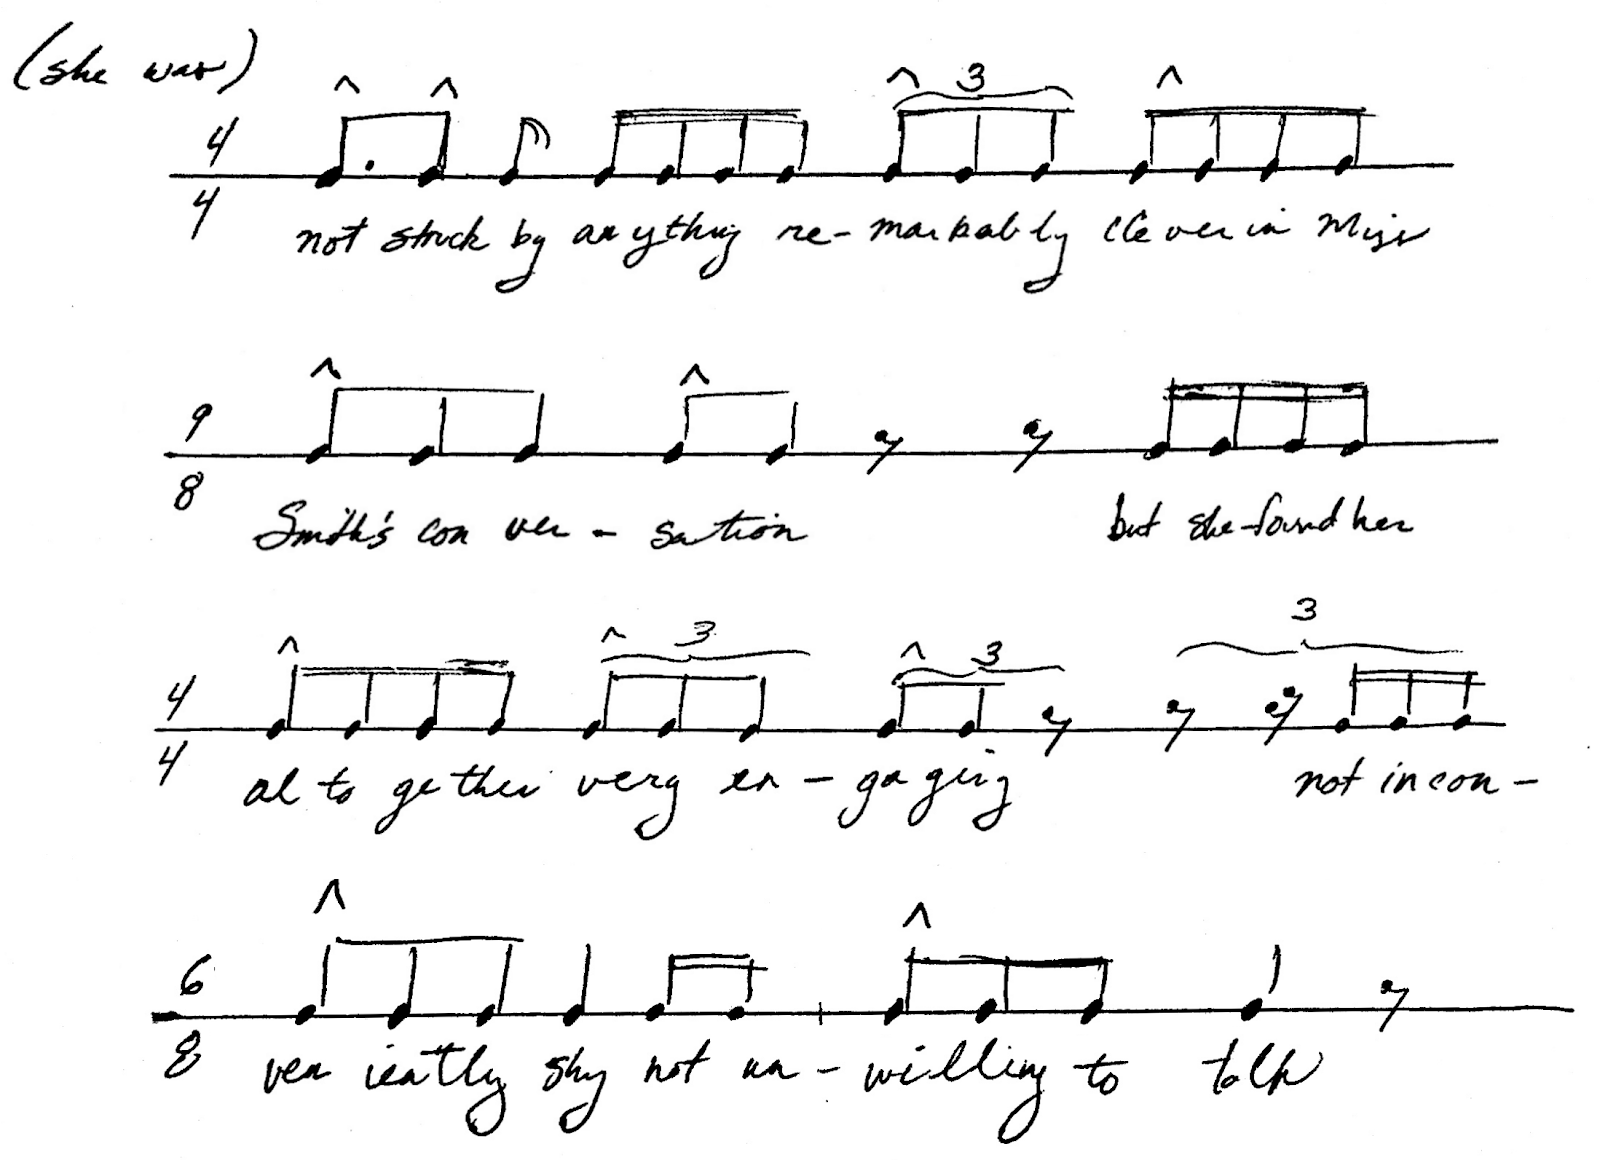 (she was)
3 3
4
4
not struck by anything re- markably clever in Miss
9
8
Smith's con ver - sation but she found her
3 3 3
4
4
al to gether very en - ga ging not in con -
6
8
ven iently shy not un - willing to talk